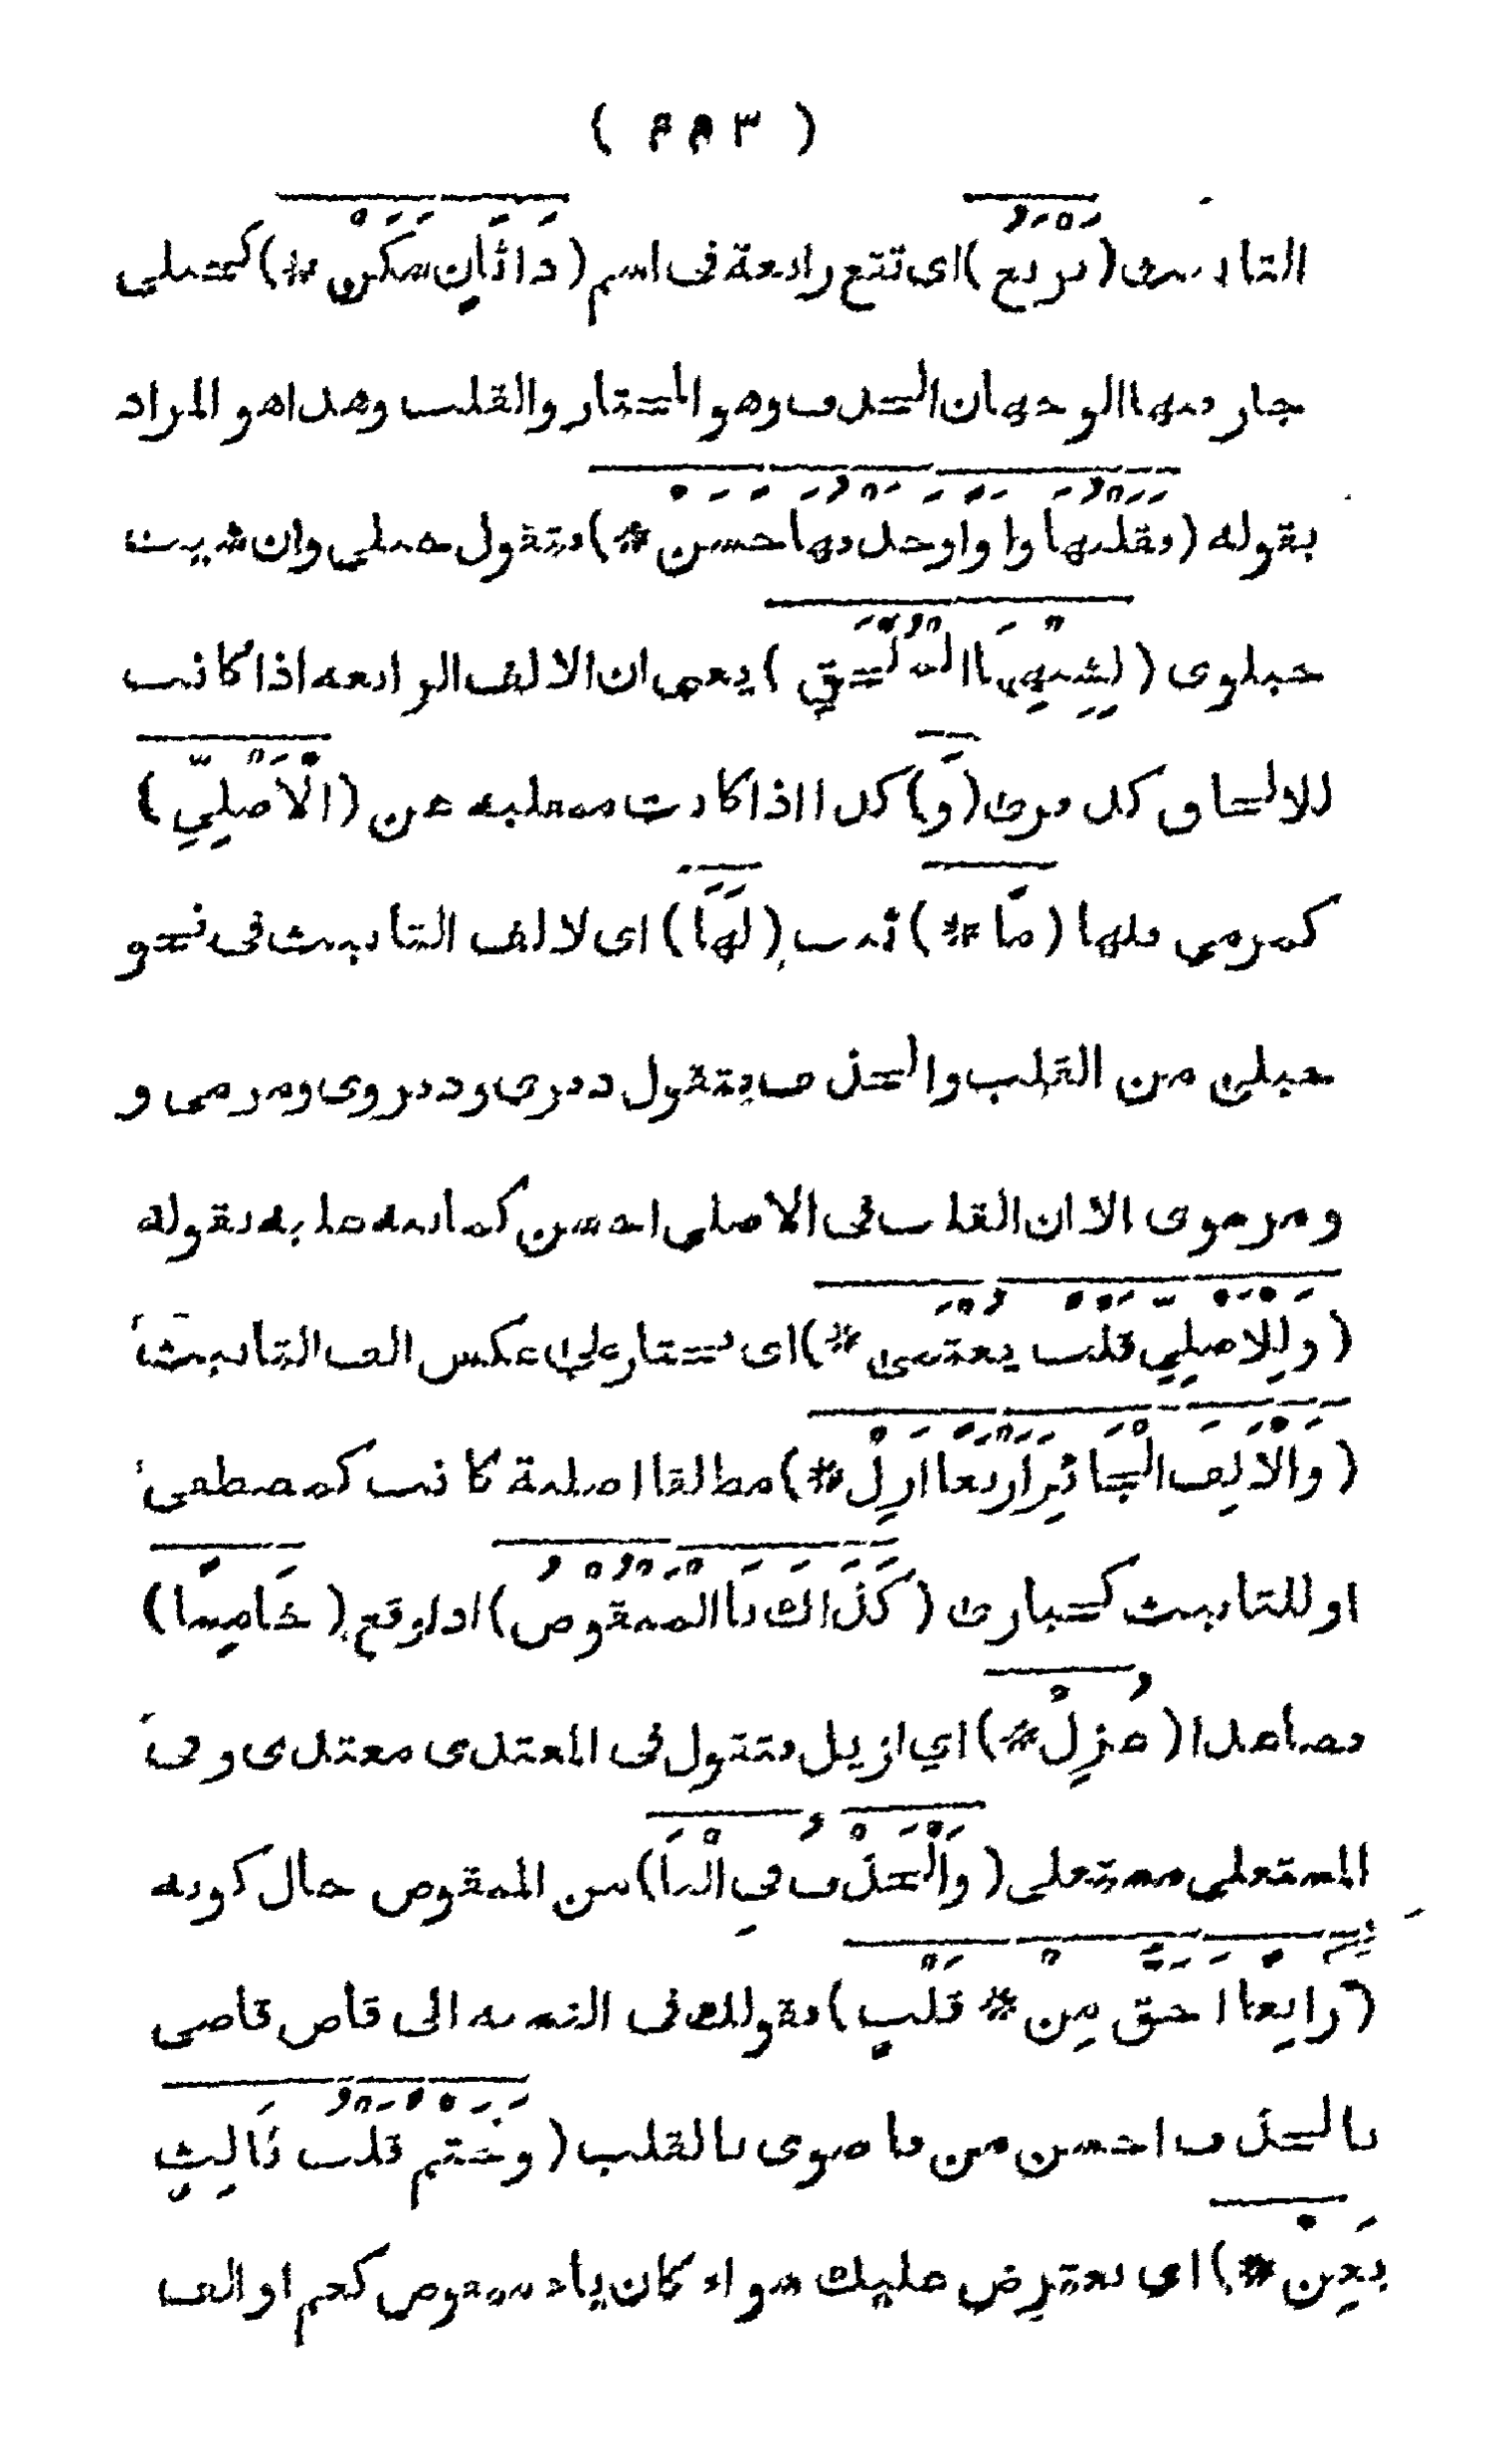 التانيث (تَرْبَعُ) اى تقع رابعة فى اسم (ذَا ثَانٍ سَكَنْ *) كحبلى
جاز فيها الوجهان الحذف وهو المختار والقلب وهذا هو المراد
بقوله (فقلبُها واوًا وحذفُها حَسَنْ *) فتقول حبلى وان شيت
حبلوى (لِشِبْهِهَا الْمُلْحَقِ) يعنى ان الالف الرابعه اذا كانت
للالحاق كذفرى (وَ) كذا اذا كانت منقلبه عن (الْاَصْلِيِّ)
كمرمى فلها (مَا *) ثبت (لَهَا) اى لالف التانيث فى نحو
حبلى من القلب والحذف فتقول ذفرى وذفروى ومرمى و
ومرموى الا ان القلب فى الاصلى احسن كما نبه عليه بقوله
(وَلِلْاصلِيِّ قَلْبٌ يُعْتَمَى *) اى يختار على عكس الف التانيث
(وَالْاَلِفَ الْجَائِزَ اَرْبَعًا اَزِلْ *) مطلقا اصلية كانت كمصطفى
او للتانيث كحبارى (كَذَاكَ يَا الْمَنْقُوصِ) اذا وقع (خَامِسًا)
فصاعدا (عُزِلْ *) اي ازيل فتقول فى المعتدى معتدى وفى
المستعلى مستعلى (وَالْحَذْفُ فِي الْيَا) من المنقوص حال كونه
(رَابِعًا اَحَقُّ مِنْ * قَلْبٍ) فقولك فى النسبه الى قاض قاضى
بالحذف احسن من قاضوى بالقلب (وَحَتْمٌ قَلْبُ ثَالِثٍ
يَعِنْ *) اى يعترض عليك سواء كان ياء منقوص كعم او الف